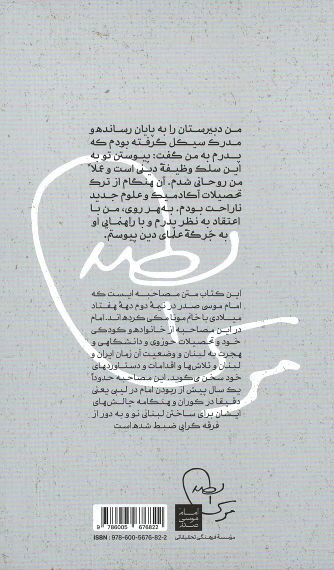 من دبیرستان را به پایان رسانده و
مدرک سیکل گرفته بودم که
پدرم به من گفت: پیوستن تو به
این سلک وظیفهٔ دینی است و عملاً
من روحانی شدم. آن هنگام از ترک
تحصیلات آکادمیک و علوم جدید
ناراحت بودم. به هر روی، من با
اعتقاد به نظر پدرم و با راهنمایی او
به جرکهٔ علمای دین پیوستم.
صدر
این کتاب متن مصاحبه ایست که
امام موسی صدر در نیمهٔ دوم دههٔ هفتاد
میلادی با خانم مونا مکی کرده‌اند. امام
در این مصاحبه از خانواده و کودکی
خود و تحصیلات حوزوی و دانشگاهی و
هجرت به لبنان و وضعیت آن زمان ایران و
لبنان و تلاش‌ها و اقدامات و دستاوردهای
خود سخن می‌گوید. این مصاحبه حدوداً
یک سال پیش از ربودن امام در لیبی یعنی
دقیقا در کوران و هنگامه چالش‌های
ایشان برای ساختن لبنانی نو و به دور از
فرقه گرایی ضبط شده است
صدر
امام
موسی
صدر
9 786005 676822
ISBN : 978-600-5676-82-2
مؤسسهٔ فرهنگی تحقیقاتی